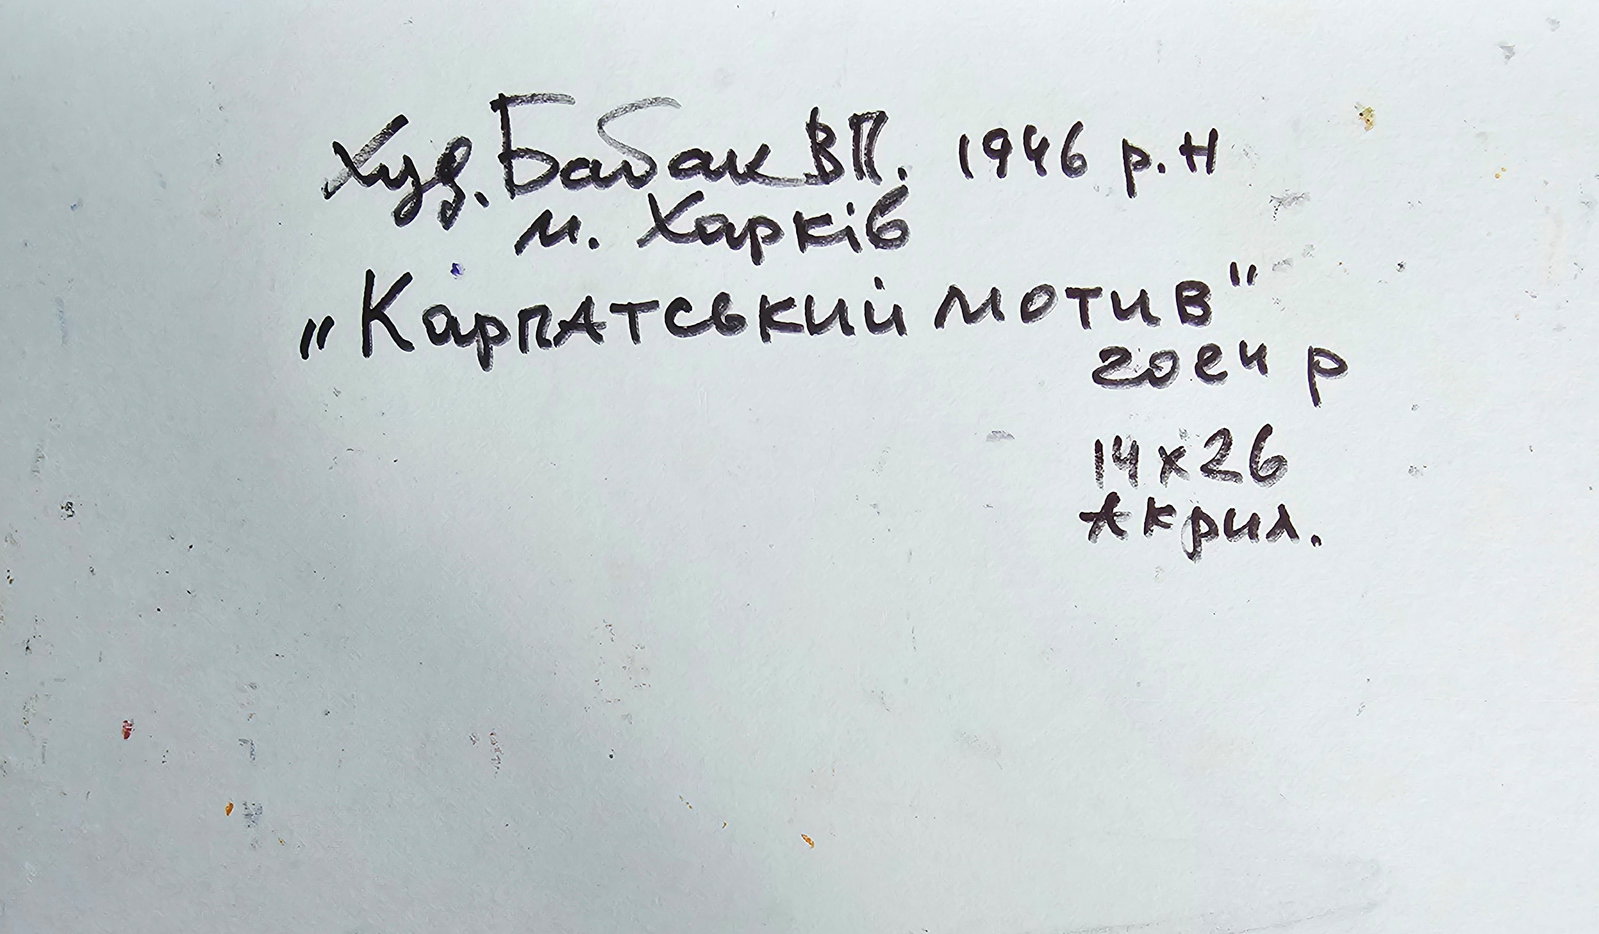 Худ. Бабак ВП. 1946 р.н
м. Харків
„Карпатський мотив"
2024 р
14х26
Акрил.